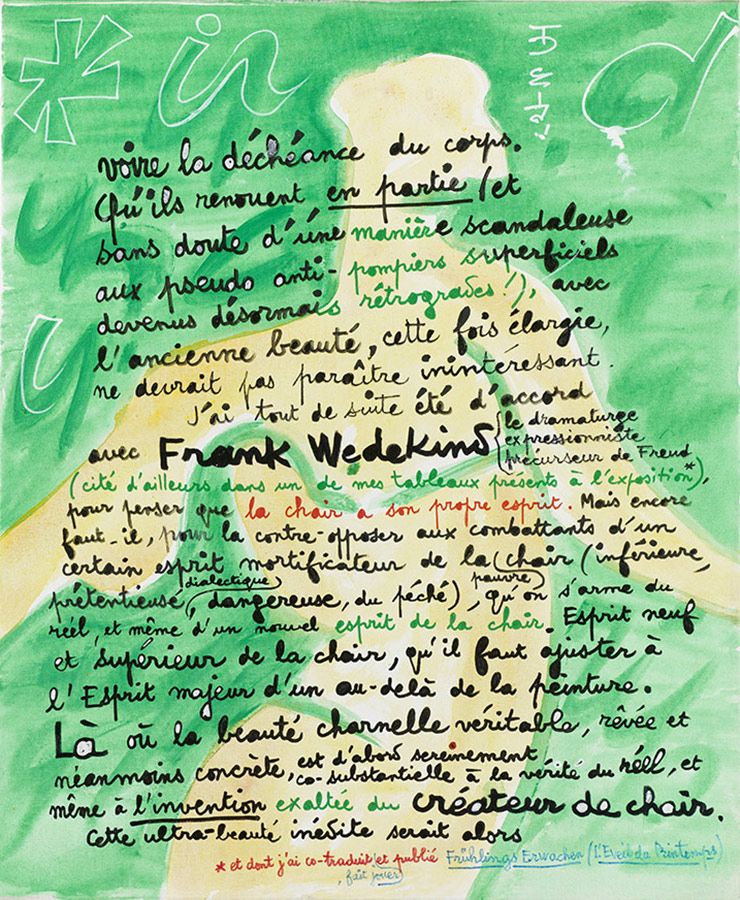 voire la déchéance du corps.
Qu'ils renouent en partie (et
sans doute d'une manière scandaleuse
aux pseudo anti-pompiers superficiels
devenus désormais rétrogrades !), avec
l'ancienne beauté, cette fois élargie,
ne devrait pas paraître inintéressant.
J'ai tout de suite été d'accord
avec Frank Wedekind { le dramaturge
expressionniste
précurseur de Freud
(cité d'ailleurs dans un de mes tableaux présents à l'exposition*),
pour penser que la chair a son propre esprit. Mais encore
faut-il, pour la contre-opposer aux combattants d'un
certain esprit mortificateur de la chair (inférieure,
dialectique pauvre
prétentieuse, dangereuse, du péché), qu'on s'arme du
réel, et même d'un nouvel esprit de la chair. Esprit neuf
et supérieur de la chair, qu'il faut ajuster à
l'Esprit majeur d'un au-delà de la peinture.
Là où la beauté charnelle véritable, rêvée et
néanmoins concrète, est d'abord sereinement
co-substantielle à la vérité du réel, et
même à l'invention exaltée du créateur de chair.
Cette ultra-beauté inédite serait alors
* et dont j'ai co-traduit et publié Frühlings Erwachen (L'Eveil du Printemps)
, fait jouer)